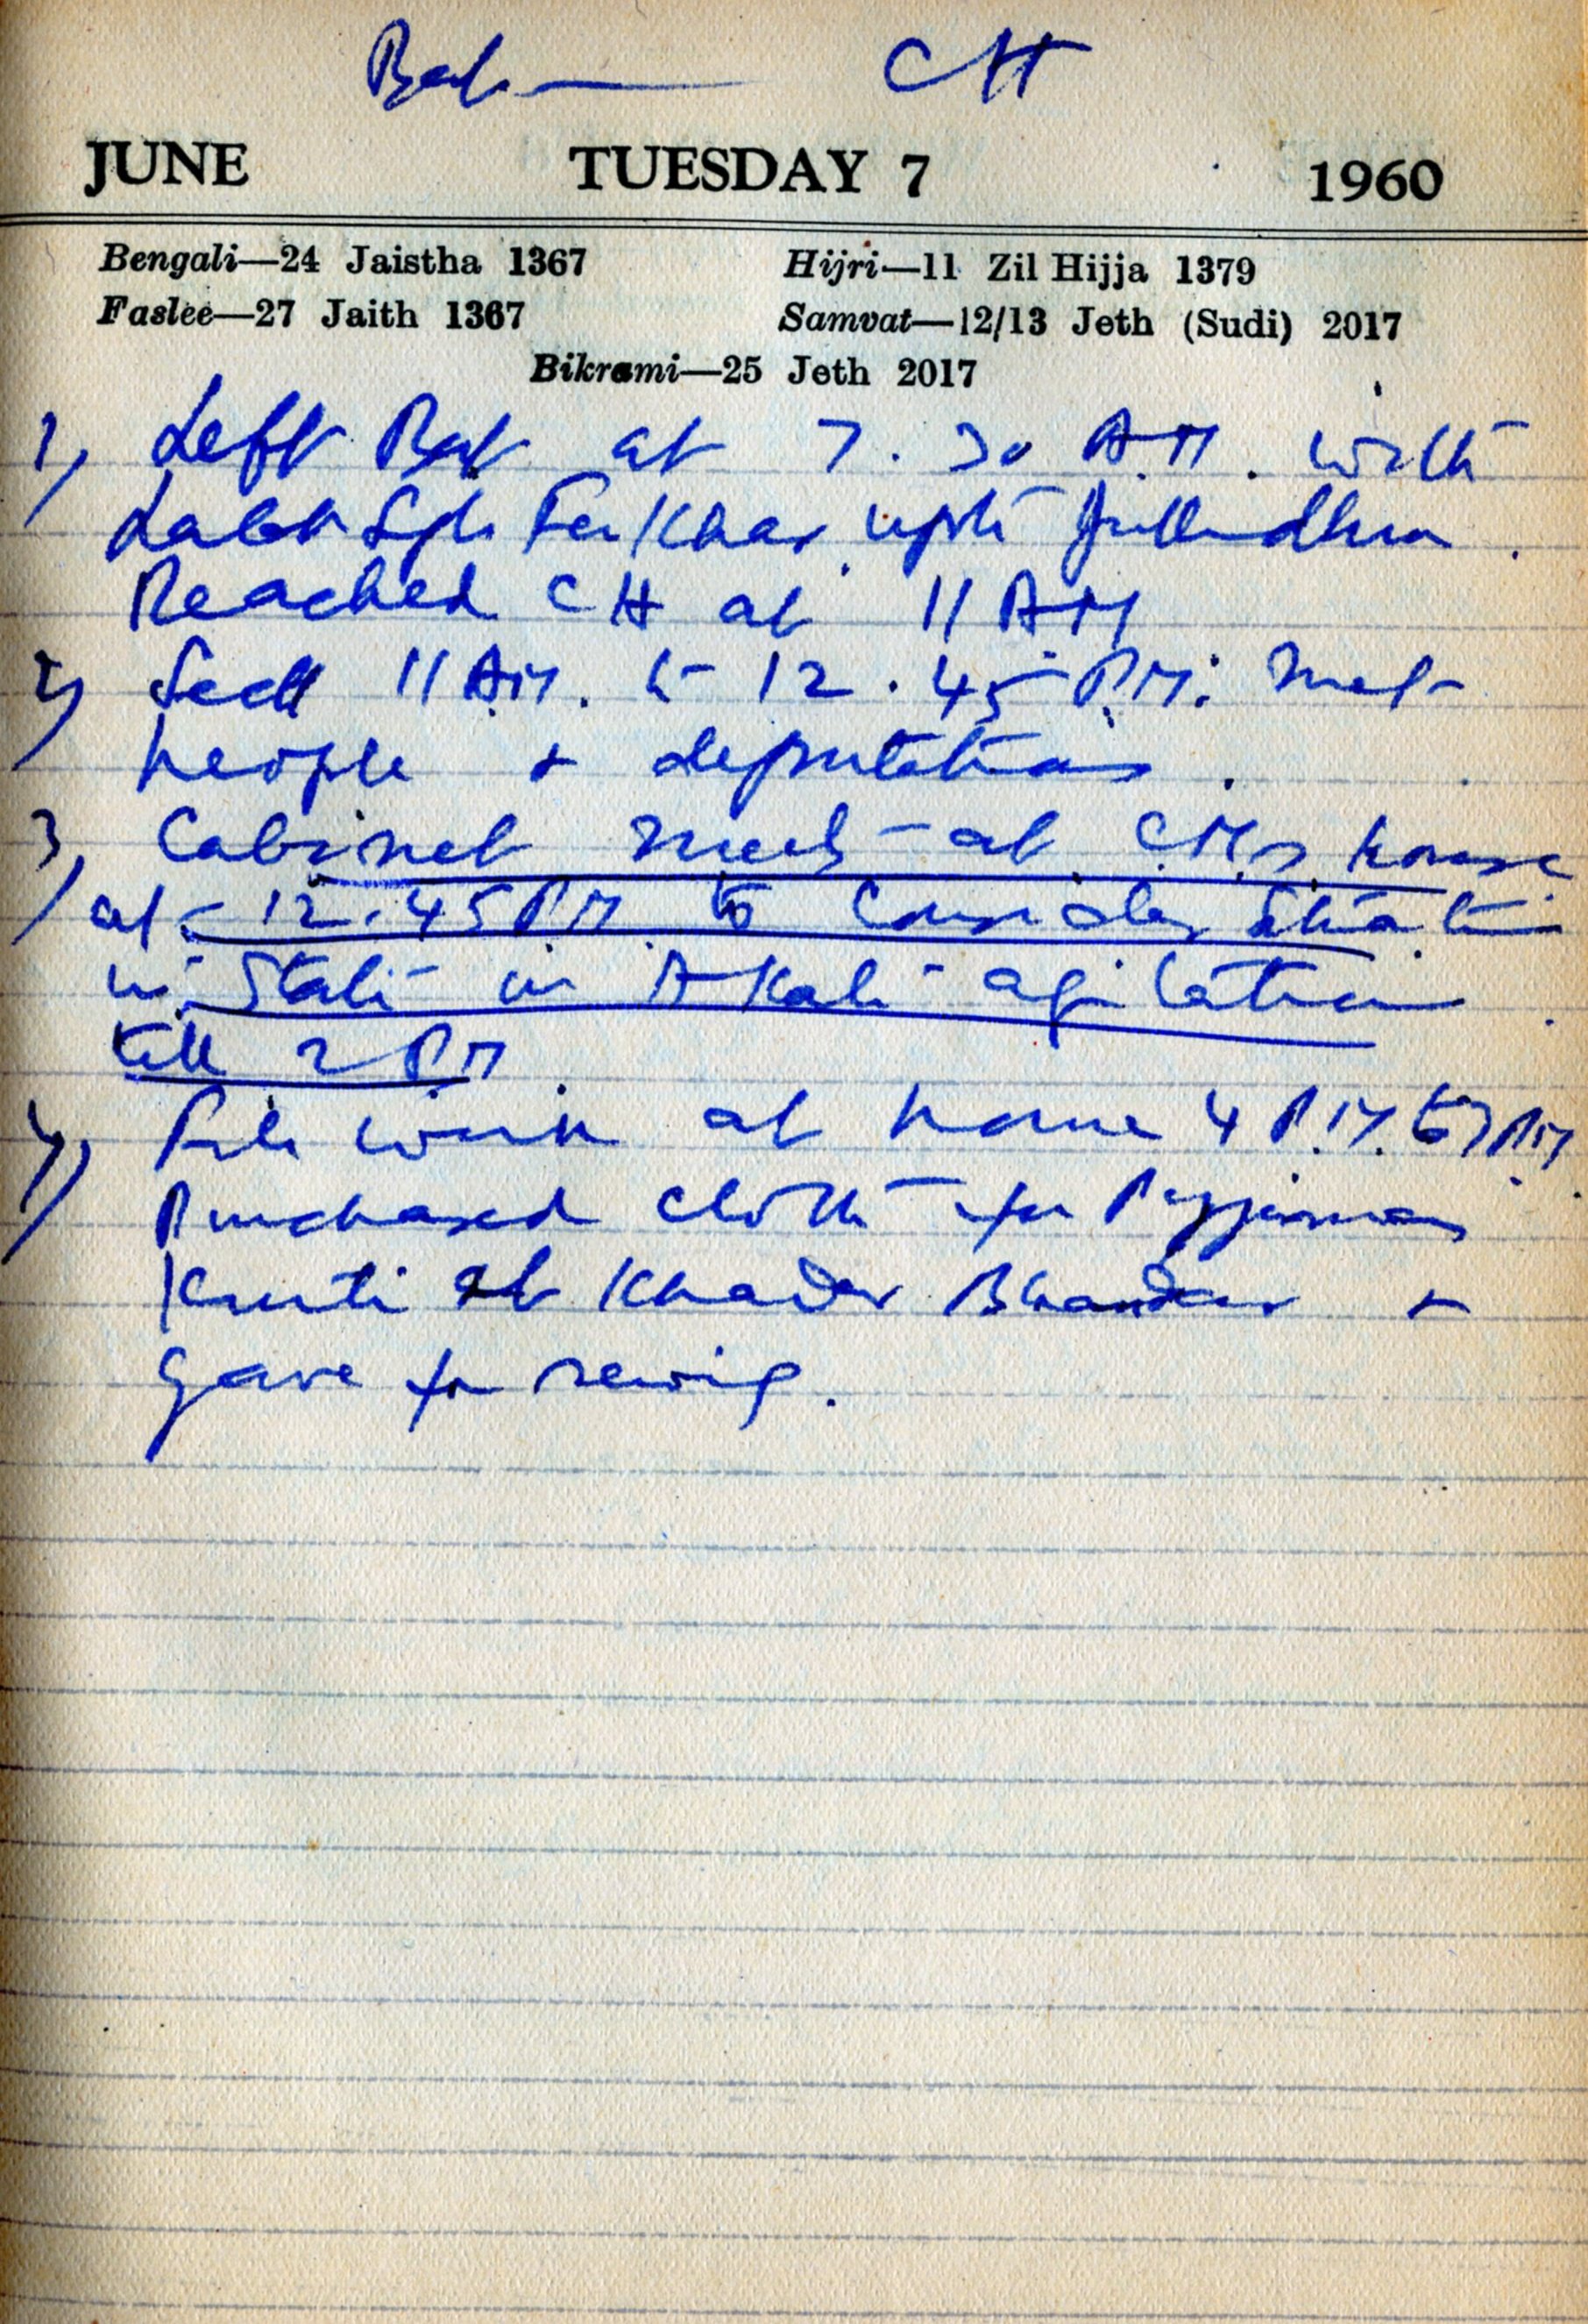 CH
JUNE TUESDAY 7 1960
Bengali—24 Jaistha 1367 Hijri—11 Zil Hijja 1379
Faslee—27 Jaith 1367 Samvat—12/13 Jeth (Sudi) 2017
Bikrami—25 Jeth 2017
1) Left at 7.30 A.M. with
Labh Sgh upto
Reached CH at 11 AM
2) Sectt 11 AM. to 12.45 P.M. Met
people + deputations.
3) Cabinet meets at CM's house
at 12.45 PM to consider situation
in State in Akali agitation
till 2 PM
4) File work at home 4 P.M. to 7 PM
Purchased cloth for
at Khadar Bhandar +
gave for sewing.